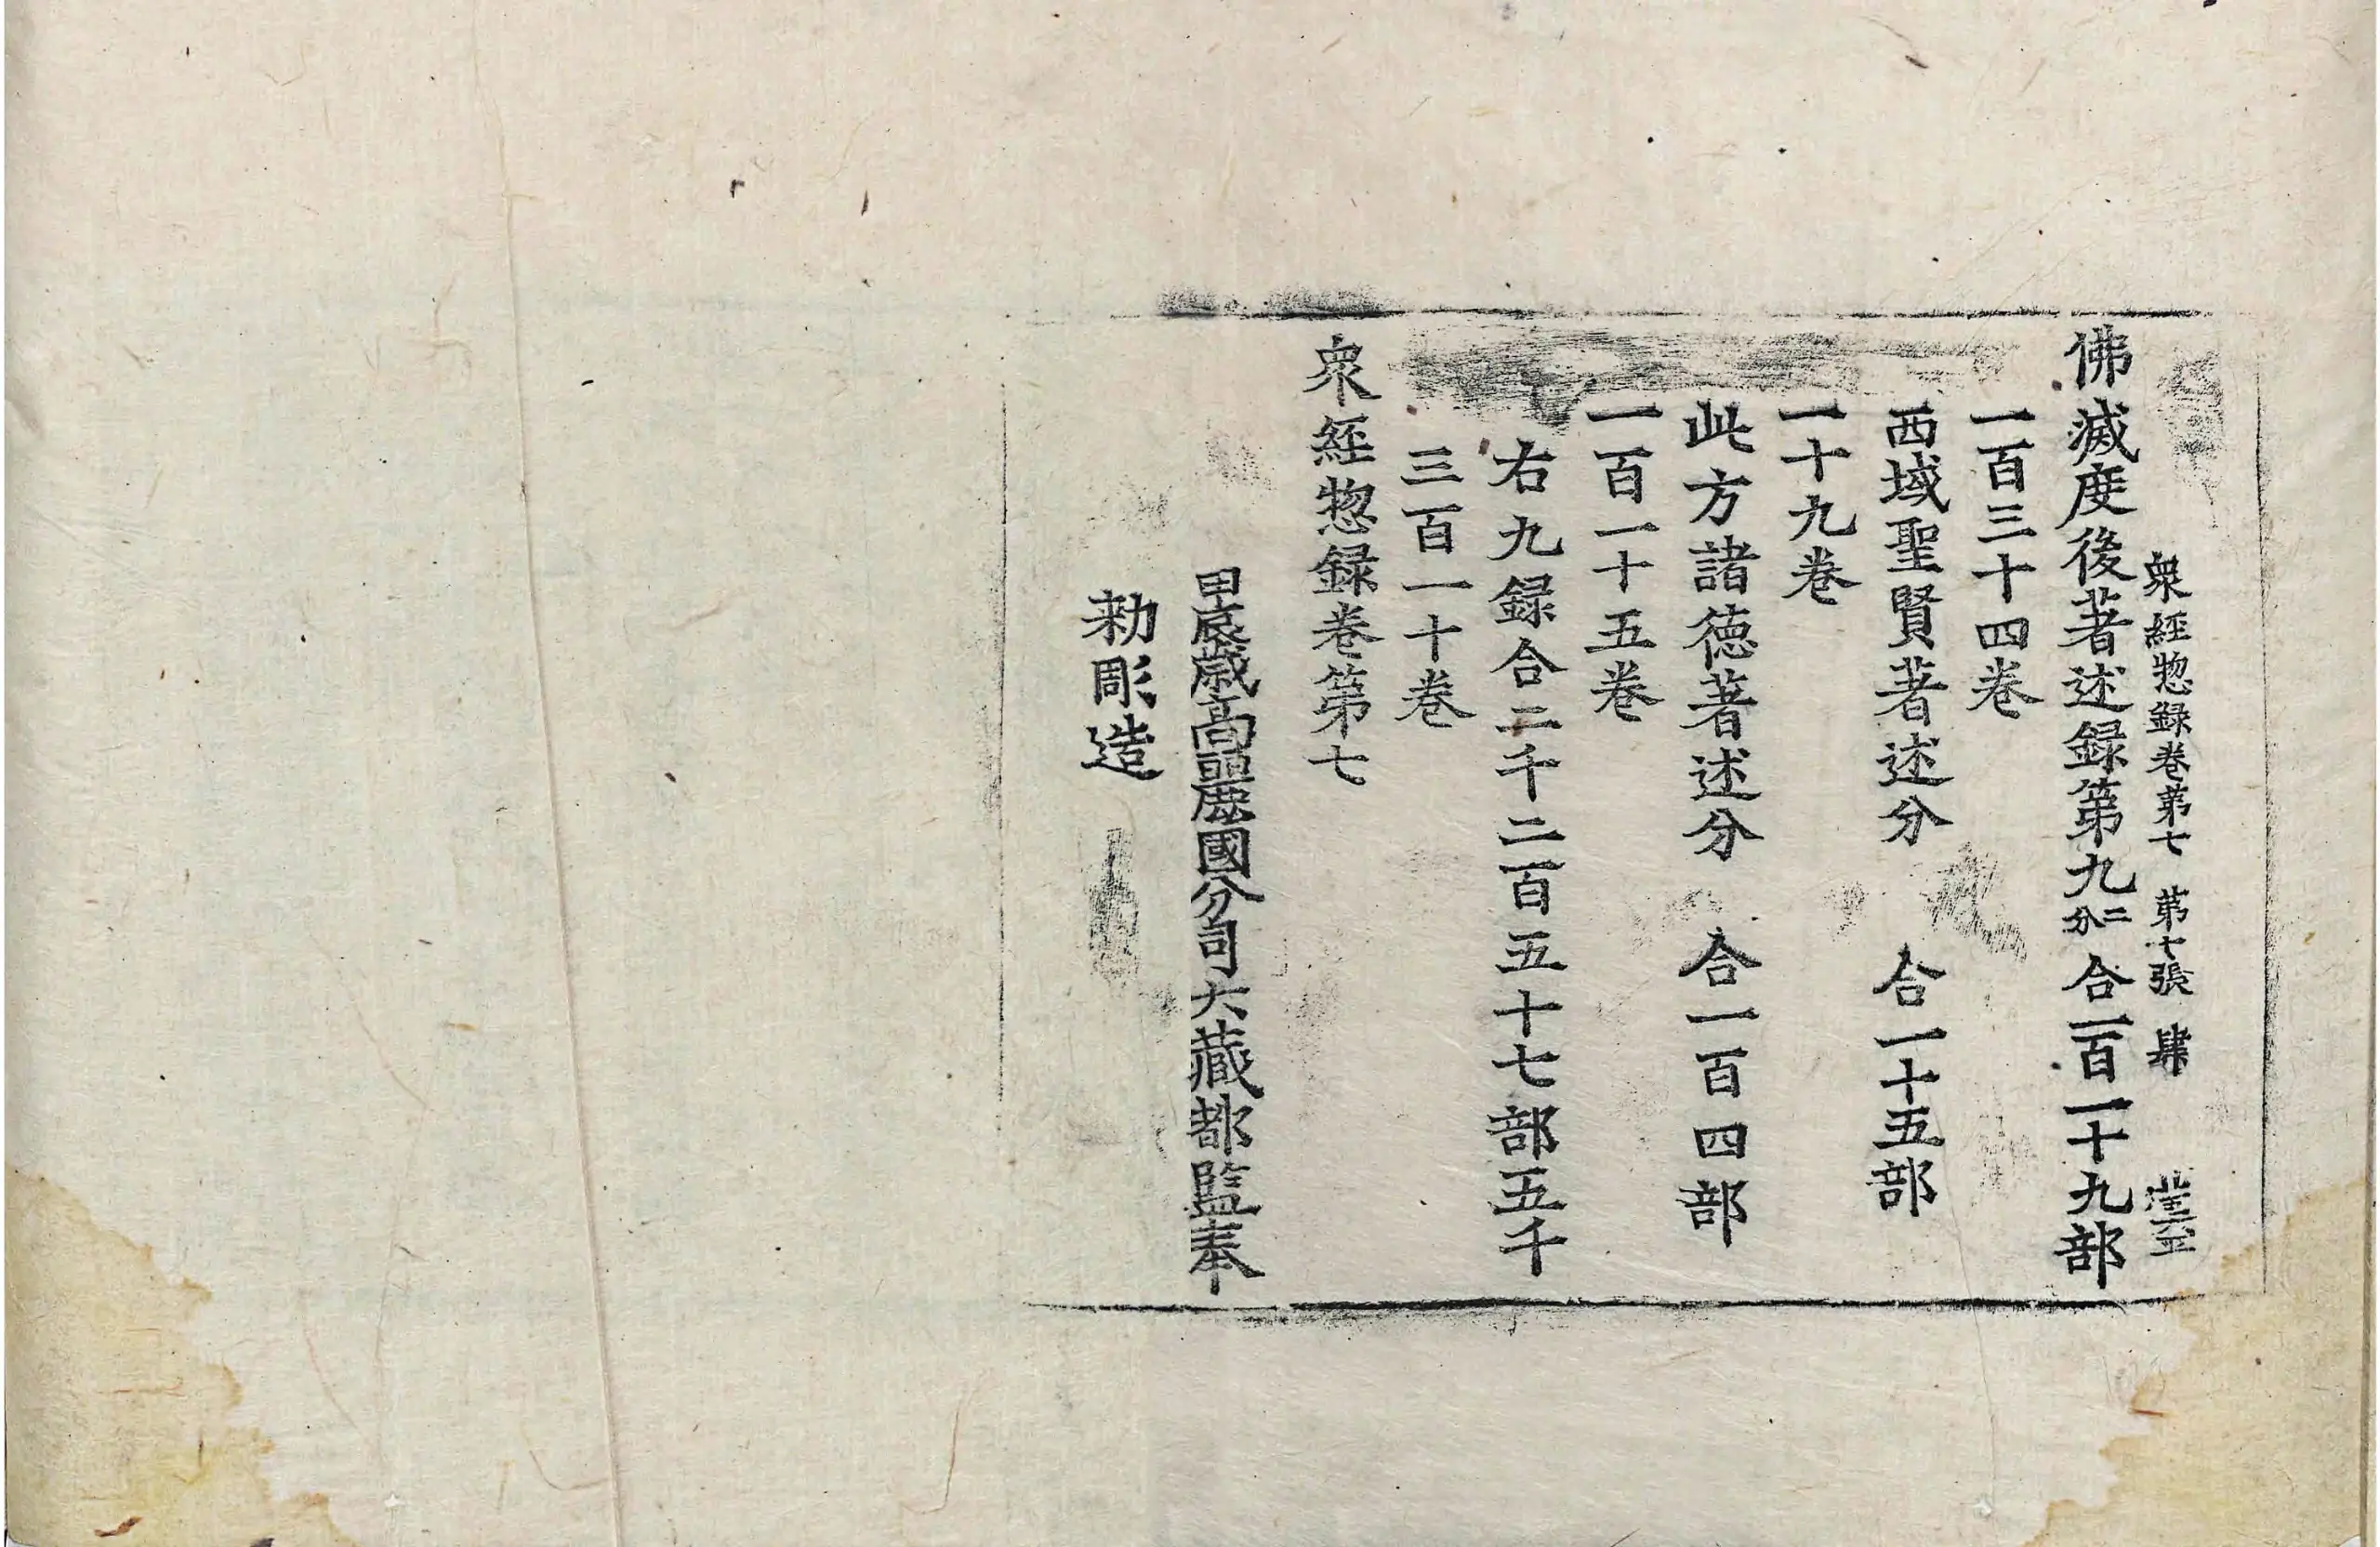 衆經惣録卷第七　第十張　肆
佛滅度後著述録第九二分合一百一十九部
一百三十四卷
西域聖賢著述分　合一十五部
一十九卷
此方諸德著述分　合一百四部
一百一十五卷
右九録合二千二百五十七部五千
三百一十卷
衆經惣録卷第七
甲辰歲高麗國分司大藏都監奉
勑彫造